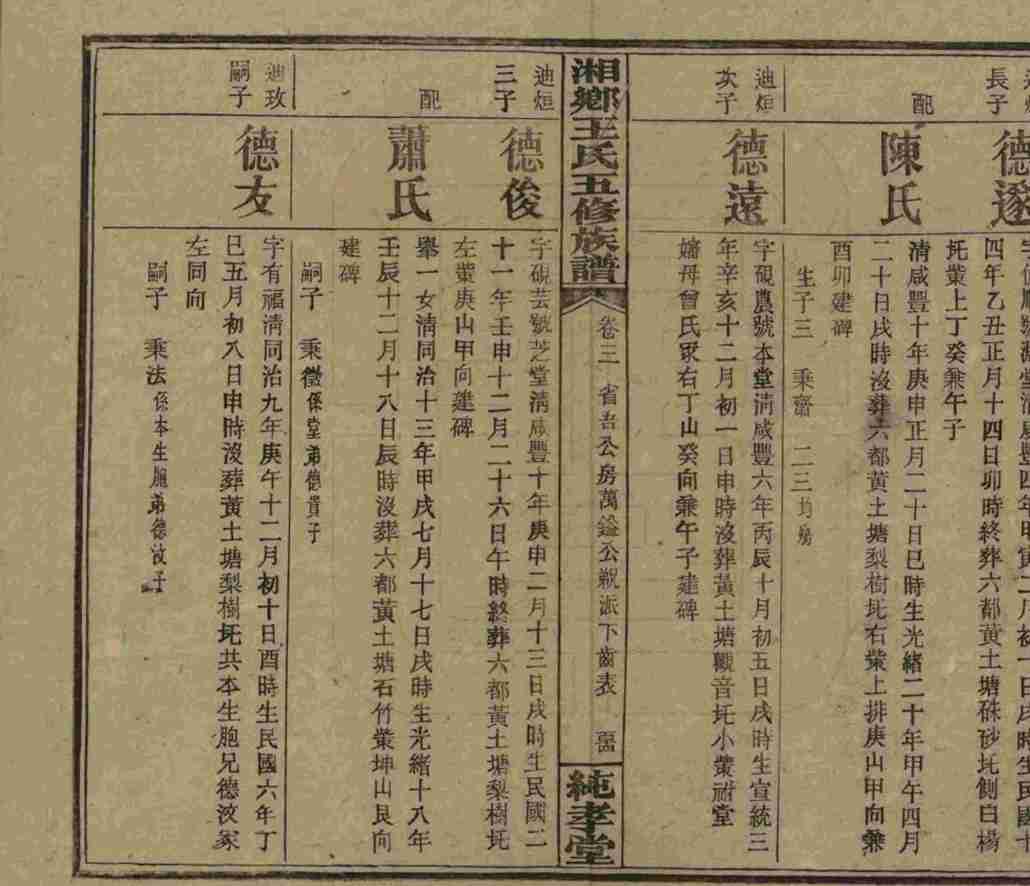 長子
德邃
四年乙丑正月十四日卯時終葬六都黃土塘硃砂坵側白楊
坵業上丁癸兼午子
配
陳氏
清咸豐十年庚申正月二十日巳時生光緒二十年甲午四月
二十日戌時沒葬六都黃土塘梨樹坵右業上排庚山甲向兼
酉卯建碑
生子三 秉齋 二三均房
迪烜
次子
德遠
字硯農號本堂清咸豐六年丙辰十月初五日戌時生宣統三
年辛亥十二月初一日申時沒葬黃土塘觀音坵小業祔堂
嬸母曾氏冢右丁山癸向兼午子建碑
湘鄉王氏五修族譜
卷三 省吾公房萬鎰公親派下齒表
純孝堂
迪烜
三子
德俊
字硯芸號芝堂清咸豐十年庚申二月十三日戌時生民國二
十一年壬申十二月二十六日午時終葬六都黃土塘梨樹坵
左業庚山甲向建碑
配
蕭氏
舉一女清同治十三年甲戌七月十七日戌時生光緒十八年
壬辰十二月十八日辰時沒葬六都黃土塘石竹業坤山艮向
建碑
嗣子 秉徵係堂弟德貴子
迪玫
嗣子
德友
字有福清同治九年庚午十二月初十日酉時生民國六年丁
巳五月初八日申時沒葬黃土塘梨樹坵共本生胞兄德汶冢
左同向
嗣子 秉法係本生胞弟德汶子